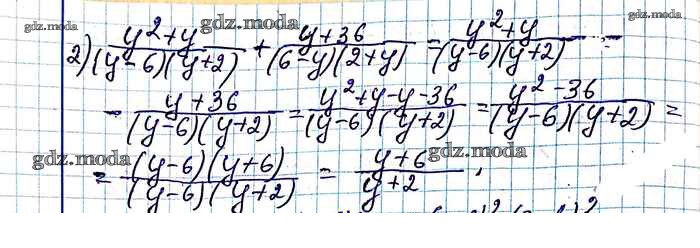 gdz.moda gdz.moda gdz.moda
2) (y²+y)/((y-6)(y+2)) + (y+36)/((6-y)(2+y)) = (y²+y)/((y-6)(y+2)) -
- (y+36)/((y-6)(y+2)) = (y²+y-y-36)/((y-6)(y+2)) = (y²-36)/((y-6)(y+2)) =
gdz.moda gdz.moda
= ((y-6)(y+6))/((y-6)(y+2)) = (y+6)/(y+2) ;